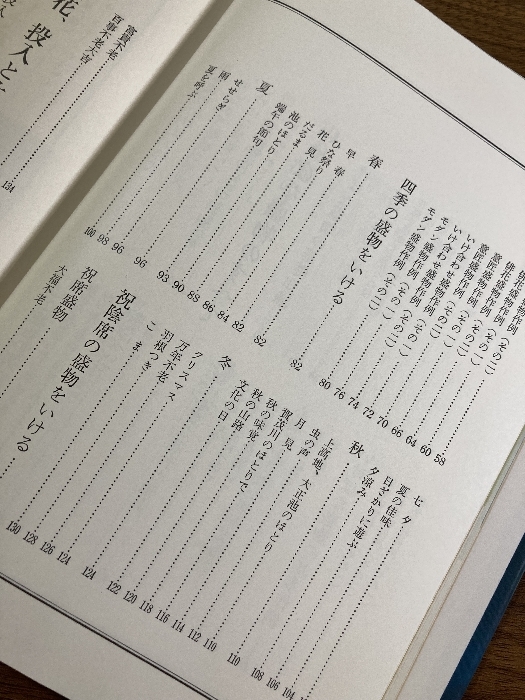 俳花盛物作例
俳花盛物作例(その二) 60
意匠盛物作例(その一) 64
意匠盛物作例(その二) 66
いけ合わせ盛物作例(その一) 70
いけ合わせ盛物作例(その二) 72
モダン盛物作例(その一) 74
モダン盛物作例(その二) 76
四季の盛物をいける 80
春 82
早春 82
ひな祭り 84
花見 86
だるま 88
池のほとり 90
端午の節句 93
夏 96
せせらぎ 96
雨 98
夏を呼ぶ 100
七夕
夏の佳味 104
日ざかりに遊ぶ 106
夕涼み 108
秋 110
上高地、大正池のほとり 110
虫の声 112
月見 114
賀茂川のほとりで 116
秋の味覚 118
秋の山路 120
文化の日 122
冬 124
クリスマス 124
万年不老 126
羽根つき 128
こま 130
祝陰席の盛物をいける
祝席盛物
大福不老
富貴不老
百事不老大吉 134
花、投入と